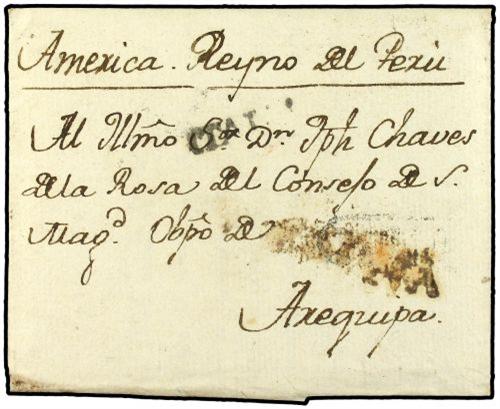 America. Reyno del Perù
Al Illmo Sor Dn Jph Chaves
de la Rosa del Consejo de S.
Magd. Obpo de
Arequipa.